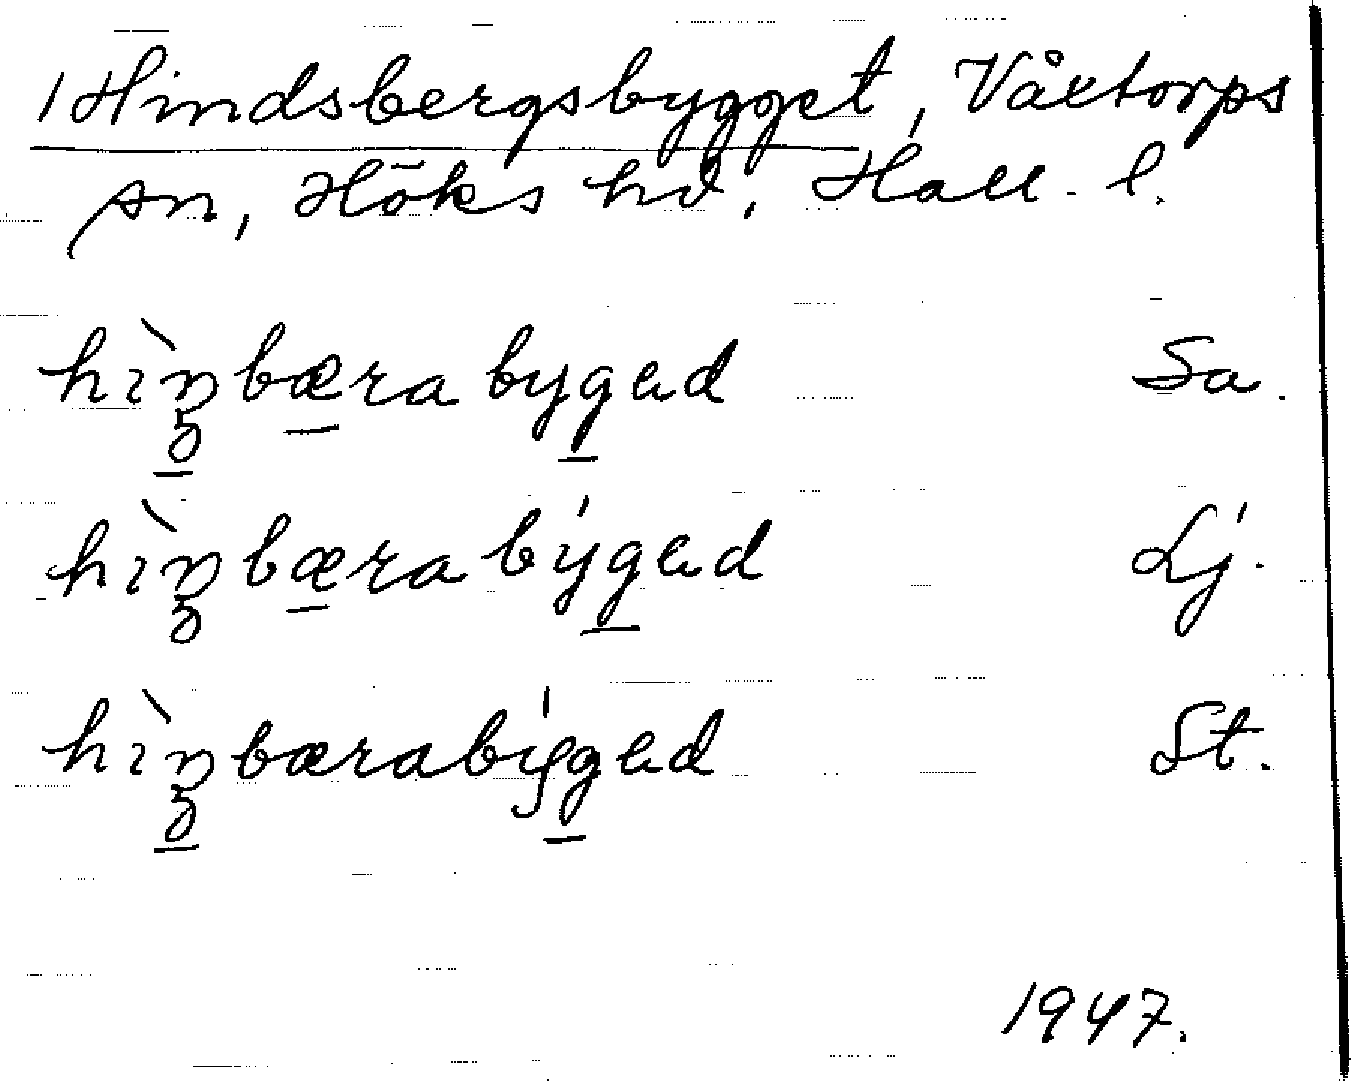 Hindsbergsbygget, Våxtorps
sn, Höks hd, Hall. l.
hìnbæra bygad Sa.
hìnbæra býgad Lj.
hìnbærabýgad St.
1947.